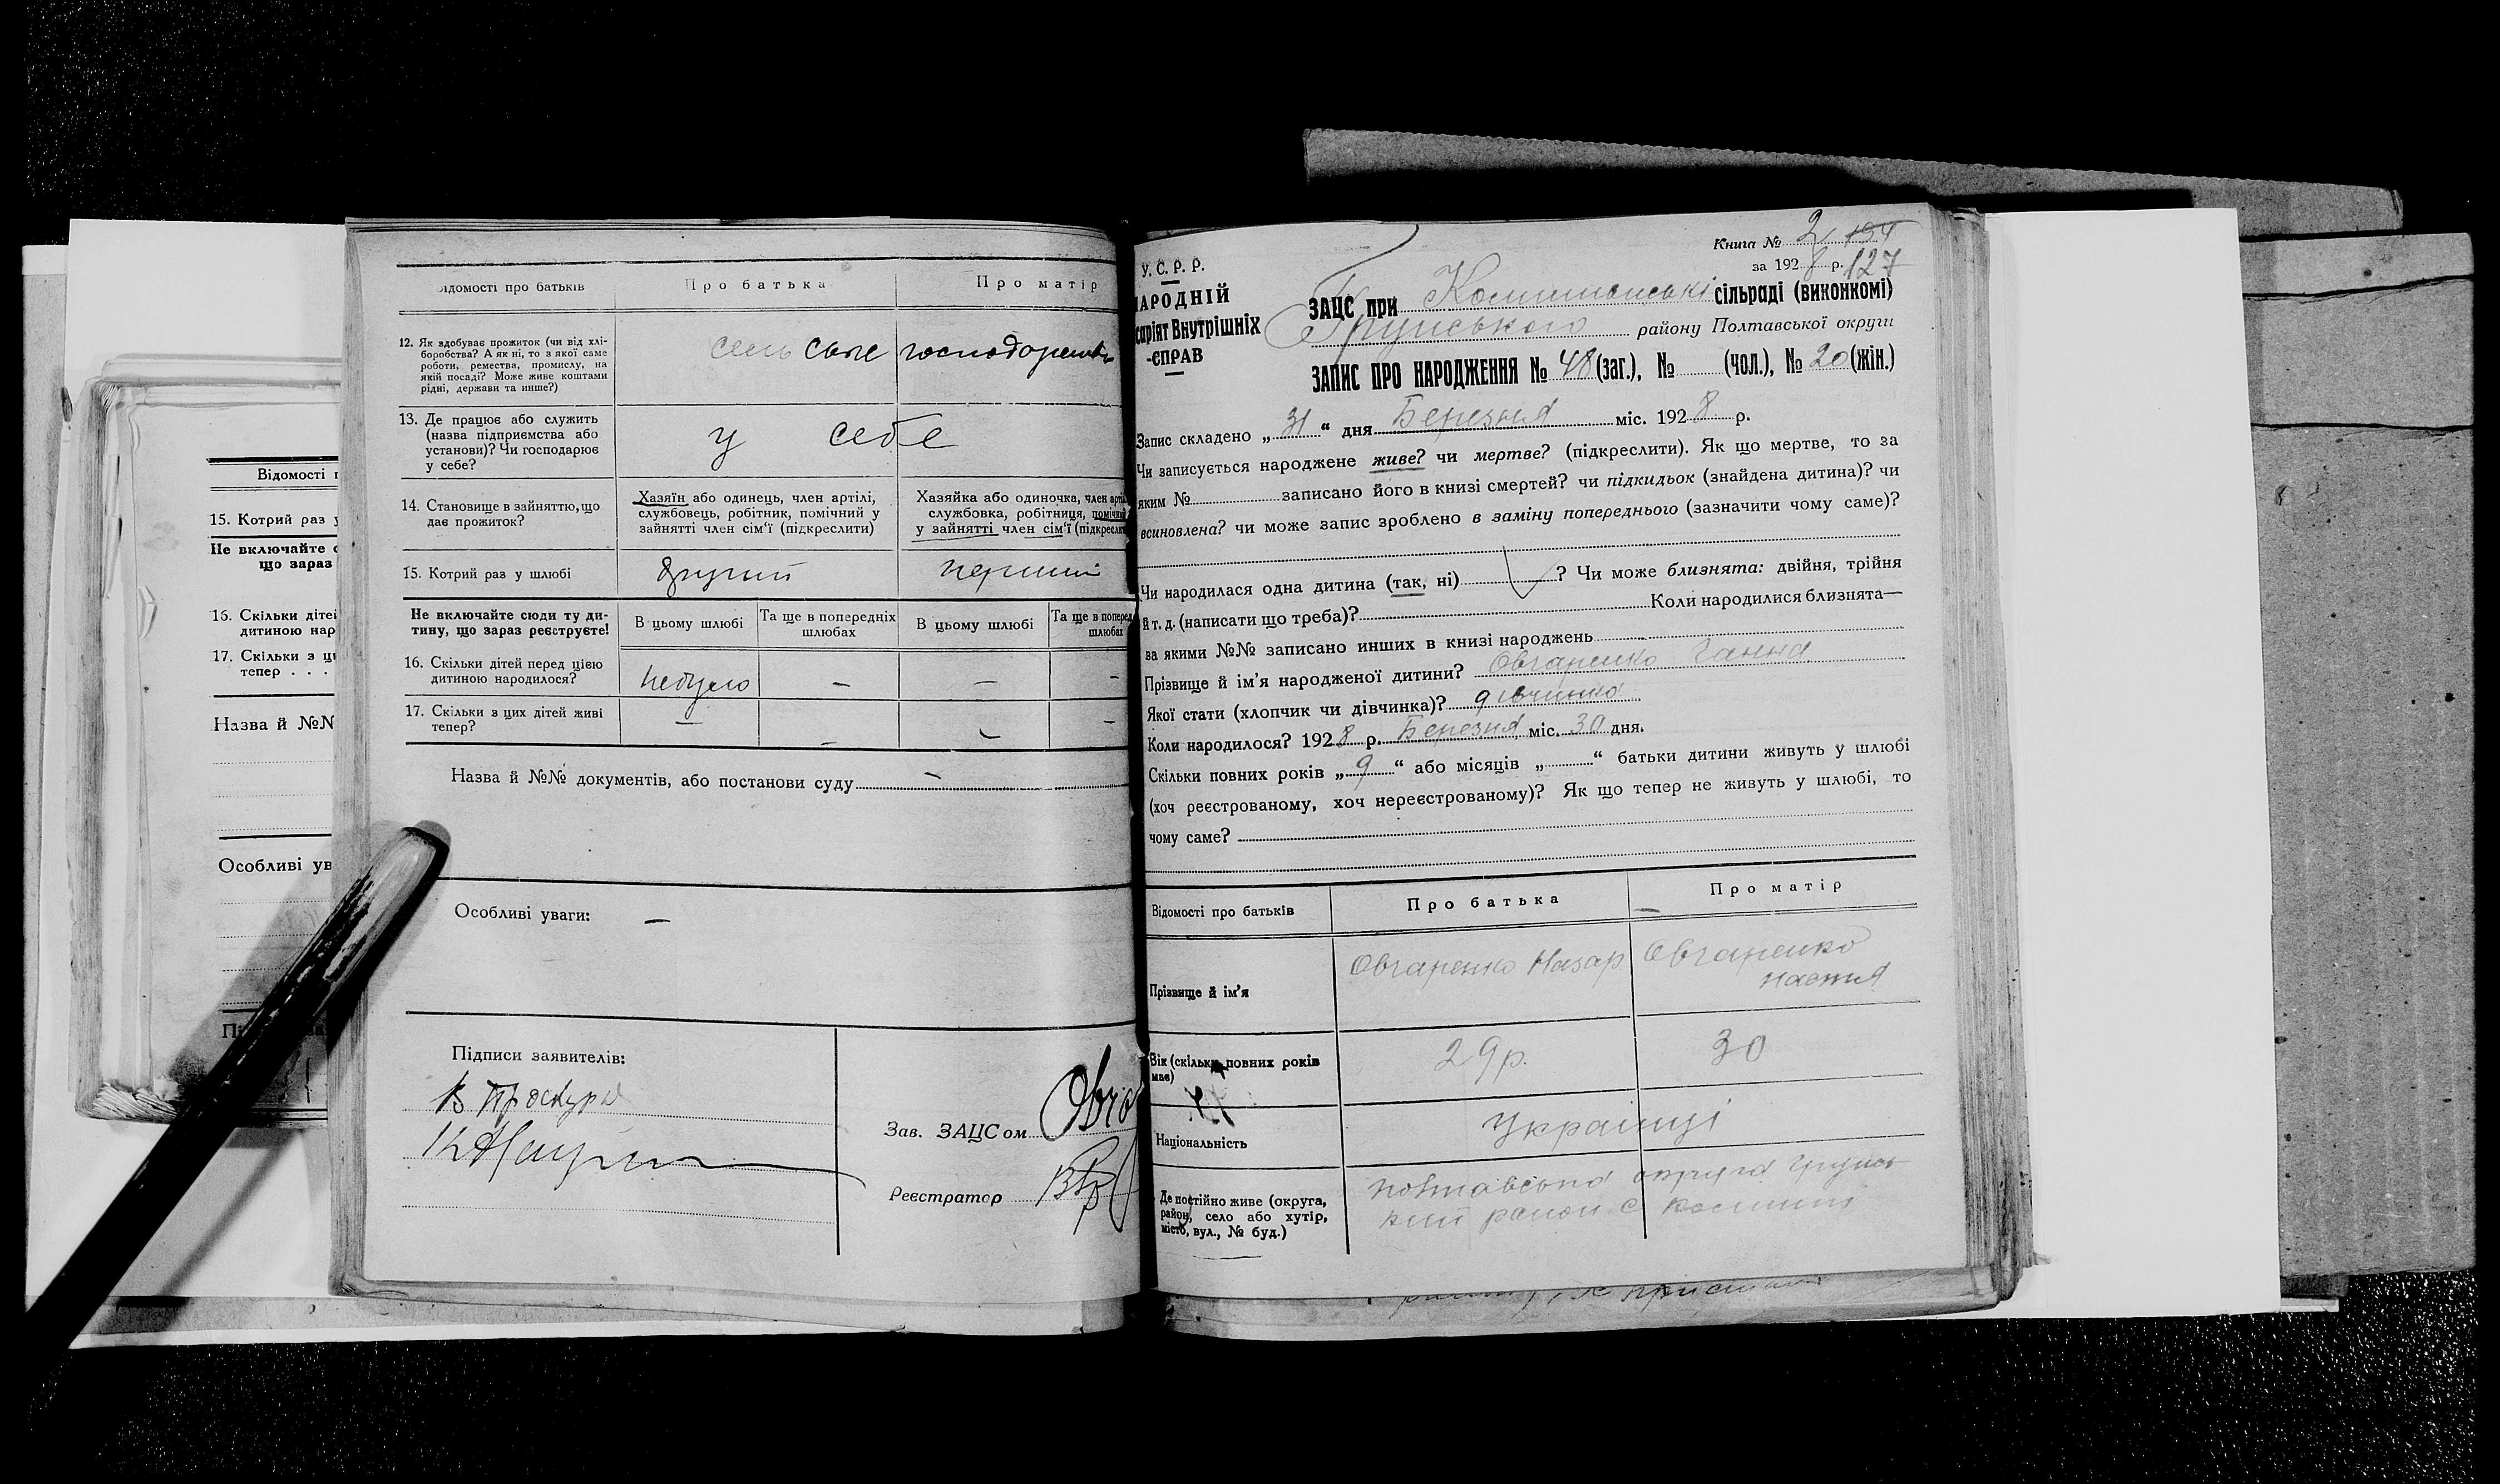 Відомості п
15. Котрий раз у
Не включайте с
що зараз
16. Скільки діте
дитиною нар
17. Скільки з ц
тепер . . .
Назва й №№
Особливі ув
відомості про батьків
Про батька
Про матір
12. Як здобуває прожиток (чи від хлі-
боробства? А як ні, то з якої саме
роботи, ремества, промислу, на
якій посаді? Може живе коштами
рідні, держави та инше?)
сільське господарство
13. Де працює або служить
(назва підприємства або
установи)? Чи господарює
у себе?
у себе
14. Становище в зайняттю, що
дає прожиток?
Хазяїн або одинець, член артілі,
службовець, робітник, помічний у
зайнятті член сім'ї (підкреслити)
Хазяйка або одиночка, член артіл
службовка, робітниця, помічни
у зайнятті член сім'ї (підкреслит
15. Котрий раз у шлюбі
другий
перший
Не включайте сюди ту ди-
тину, що зараз реєструєте!
В цьому шлюбі
Та ще в попередніх
шлюбах
В цьому шлюбі
Та ще в поперед
шлюбах
16. Скільки дітей перед цією
дитиною народилося?
небуло — — —
17. Скільки з цих дітей живі
тепер?
— — — —
Назва й №№ документів, або постанови суду —
Особливі уваги: —
Підписи заявителів:
В Проскура
Зав. ЗАЦСом Овча
Реєстратор
Книга № 2 194
за 1928 р. 127
У. С. Р. Р.
НАРОДНІЙ
саріят Внутрішніх
-СПРАВ
ЗАЦС при сільраді (виконкомі)
Грунського району Полтавської округи
ЗАПИС ПРО НАРОДЖЕННЯ № 48 (заг.), № (чол.), № 20 (жін.)
Запис складено „31“ дня Березня міс. 1928 р.
Чи записується народжене живе? чи мертве? (підкреслити). Як що мертве, то за
яким № записано його в книзі смертей? чи підкидьок (знайдена дитина)? чи
всиновлена? чи може запис зроблено в заміну попереднього (зазначити чому саме)?
Чи народилася одна дитина (так, ні) ? Чи може близнята: двійня, трійня
й т. д. (написати що треба)? Коли народилися близнята—
за якими №№ записано инших в книзі народжень
Прізвище й ім'я народженої дитини? Овчаренко Ганна
Якої стати (хлопчик чи дівчинка)? дівчинка
Коли народилося? 1928 р. Березня міс. 30 дня.
Скільки повних років „9“ або місяців „ “ батьки дитини живуть у шлюбі
(хоч реєстрованому, хоч нереєстрованому)? Як що тепер не живуть у шлюбі, то
чому саме?
Відомості про батьків
Про батька
Про матір
Прізвище й ім'я
Овчаренко Назар
Овчаренко
Настя
Вік (скільки повних років
має)
29р.
30
Національність
Українці
Де постійно живе (округа,
район, село або хутір,
місто, вул., № буд.)
Полтавська округа Грунсь
кий район с